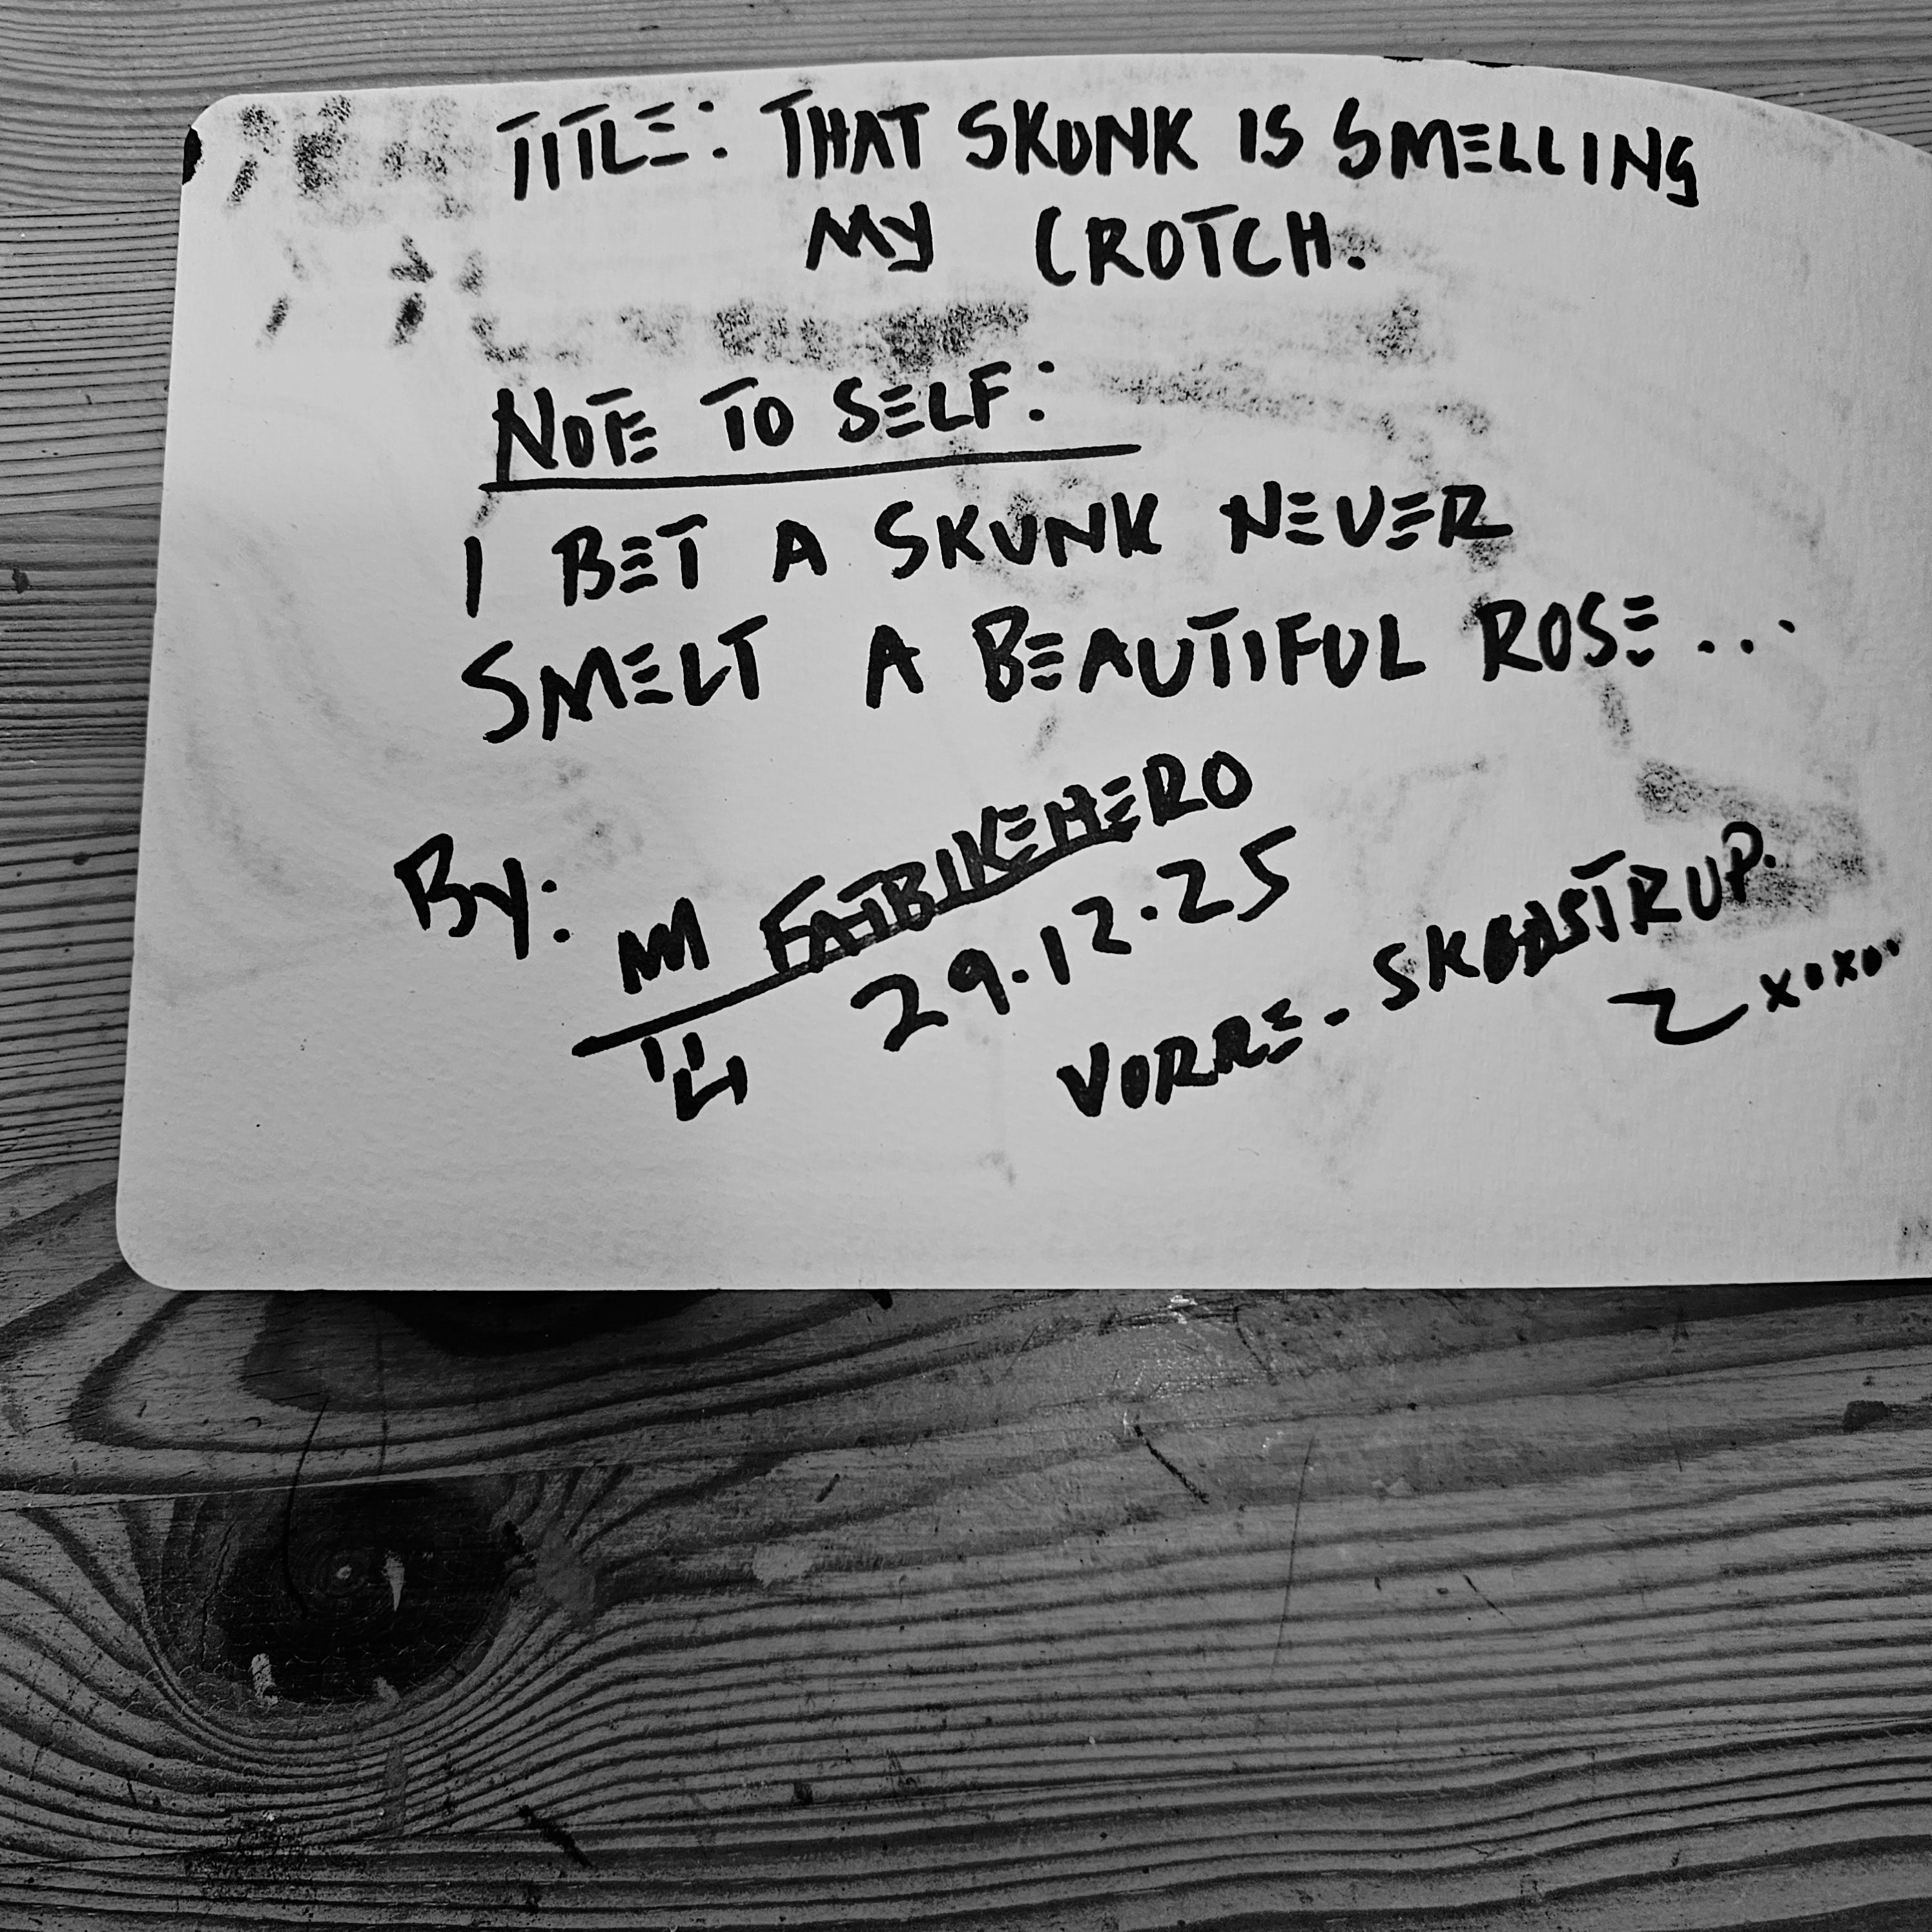 TITLE: THAT SKUNK IS SMELLING
MY CROTCH.
NOTE TO SELF:
I BET A SKUNK NEVER
SMELT A BEAUTIFUL ROSE...
By: M FATBIKEHERO
29.12.25
VORRE - SKØDSTRUP.
xoxo.